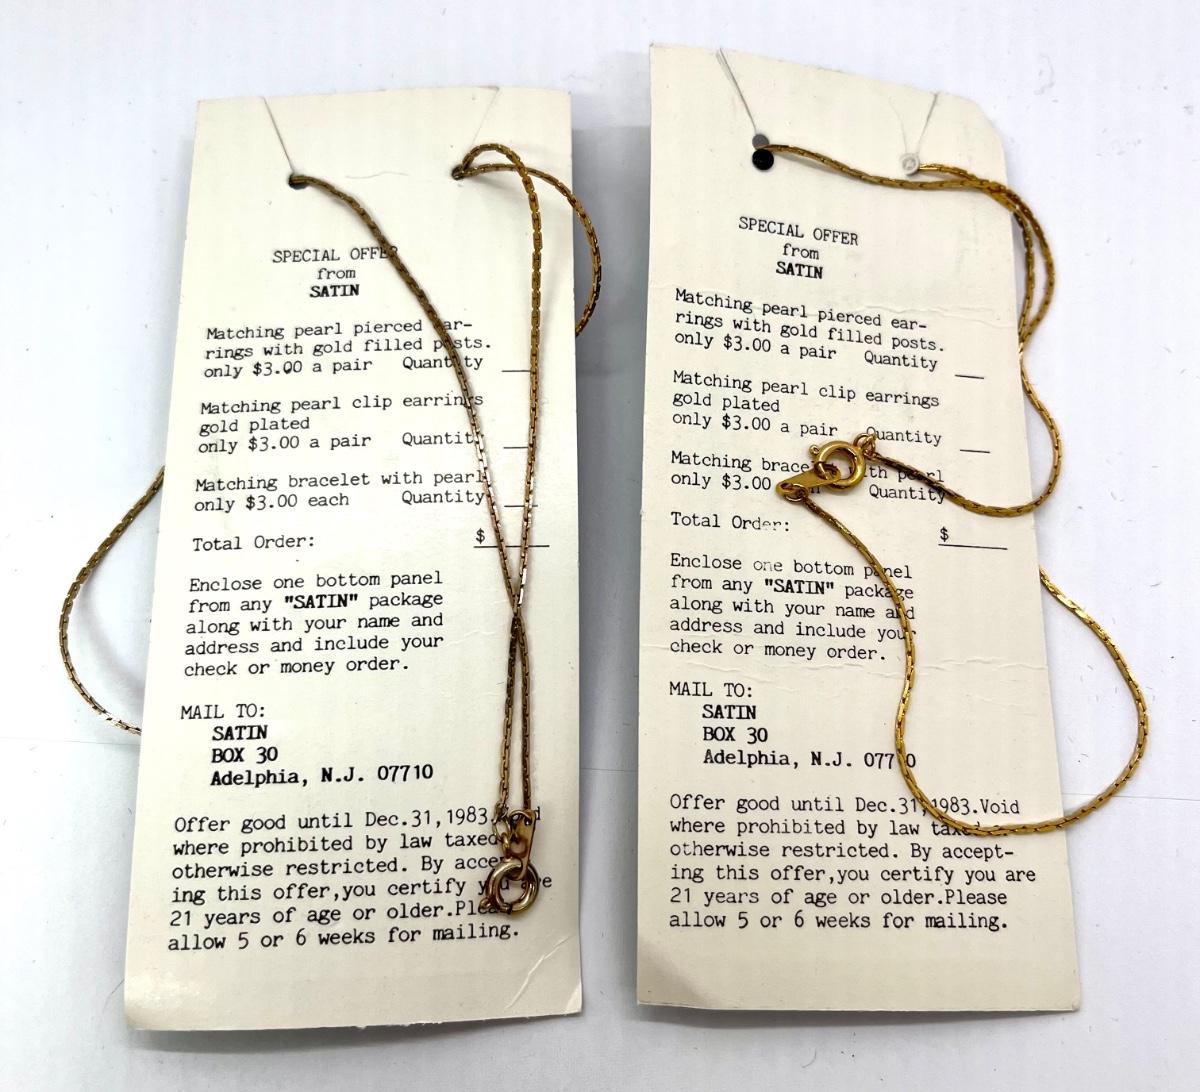 SPECIAL OFFER
from
SATIN
Matching pearl pierced ear-
rings with gold filled posts.
only $3.00 a pair Quantity ___
Matching pearl clip earrings
gold plated
only $3.00 a pair Quantity ___
Matching bracelet with pearl
only $3.00 each Quantity ___
Total Order: $______
Enclose one bottom panel
from any "SATIN" package
along with your name and
address and include your
check or money order.
MAIL TO:
SATIN
BOX 30
Adelphia, N.J. 07710
Offer good until Dec.31,1983.Void
where prohibited by law taxed
otherwise restricted. By accept-
ing this offer,you certify you are
21 years of age or older.Please
allow 5 or 6 weeks for mailing.
SPECIAL OFFER
from
SATIN
Matching pearl pierced ear-
rings with gold filled posts.
only $3.00 a pair Quantity ___
Matching pearl clip earrings
gold plated
only $3.00 a pair Quantity ___
Matching bracelet with pearl
only $3.00 each Quantity
Total Order: $______
Enclose one bottom panel
from any "SATIN" package
along with your name and
address and include your
check or money order.
MAIL TO:
SATIN
BOX 30
Adelphia, N.J. 07710
Offer good until Dec.31,1983.Void
where prohibited by law taxed
otherwise restricted. By accept-
ing this offer,you certify you are
21 years of age or older.Please
allow 5 or 6 weeks for mailing.